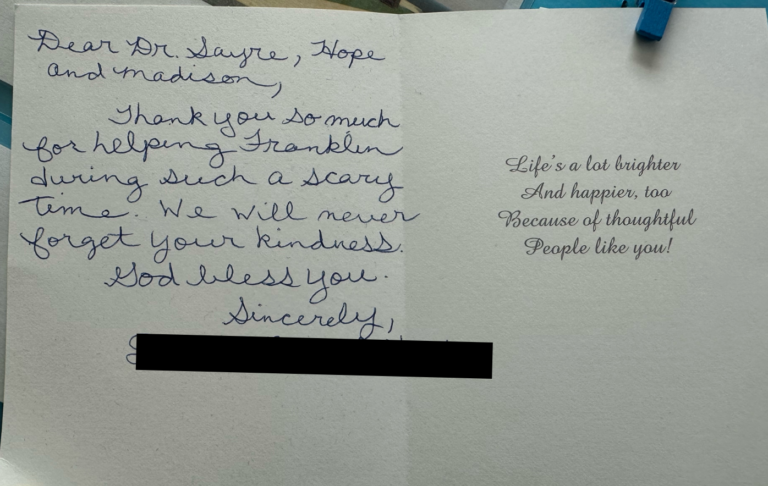 Dear Dr. Sayre, Hope
and Madison,
Thank you so much
for helping Franklin
during such a scary
time. We will never
forget your kindness.
God bless you.
Sincerely,
Life's a lot brighter
And happier, too
Because of thoughtful
People like you!